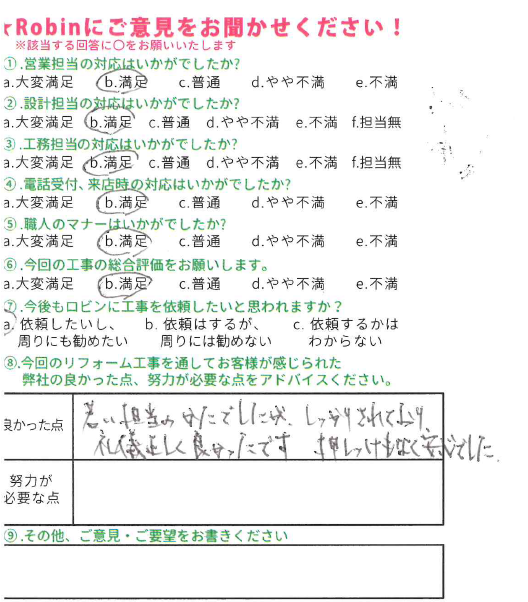 ★Robinにご意見をお聞かせください！
※該当する回答に○をお願いいたします
①.営業担当の対応はいかがでしたか?
a.大変満足 b.満足 c.普通 d.やや不満 e.不満
②.設計担当の対応はいかがでしたか?
a.大変満足 b.満足 c.普通 d.やや不満 e.不満 f.担当無
③.工務担当の対応はいかがでしたか?
a.大変満足 b.満足 c.普通 d.やや不満 e.不満 f.担当無
④.電話受付、来店時の対応はいかがでしたか?
a.大変満足 b.満足 c.普通 d.やや不満 e.不満
⑤.職人のマナーはいかがでしたか?
a.大変満足 b.満足 c.普通 d.やや不満 e.不満
⑥.今回の工事の総合評価をお願いします。
a.大変満足 b.満足 c.普通 d.やや不満 e.不満
⑦.今後もロビンに工事を依頼したいと思われますか？
a. 依頼したいし、 b. 依頼はするが、 c. 依頼するかは
周りにも勧めたい 周りには勧めない わからない
⑧.今回のリフォーム工事を通してお客様が感じられた
弊社の良かった点、努力が必要な点をアドバイスください。
良かった点
若い担当のかたでしたが、しっかりされており、
礼儀正しく良かったです 押しつけもなく安心でした.
努力が
必要な点
⑨.その他、ご意見・ご要望をお書きください